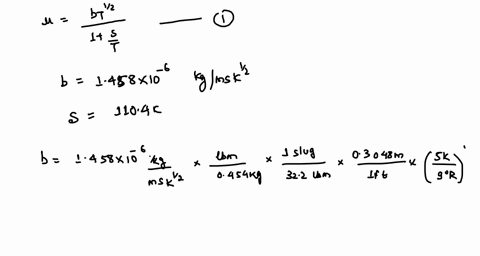 μ = bT^{1/2} / (1 + S/T) —— ①
b = 1.458×10^{-6} kg/msK^{1/2}
S = 110.4K
b = 1.458×10^{-6} kg/msK^{1/2} × lbm/0.454kg × 1 slug/32.2 lbm × 0.3048m/1ft × (5K/9°R)